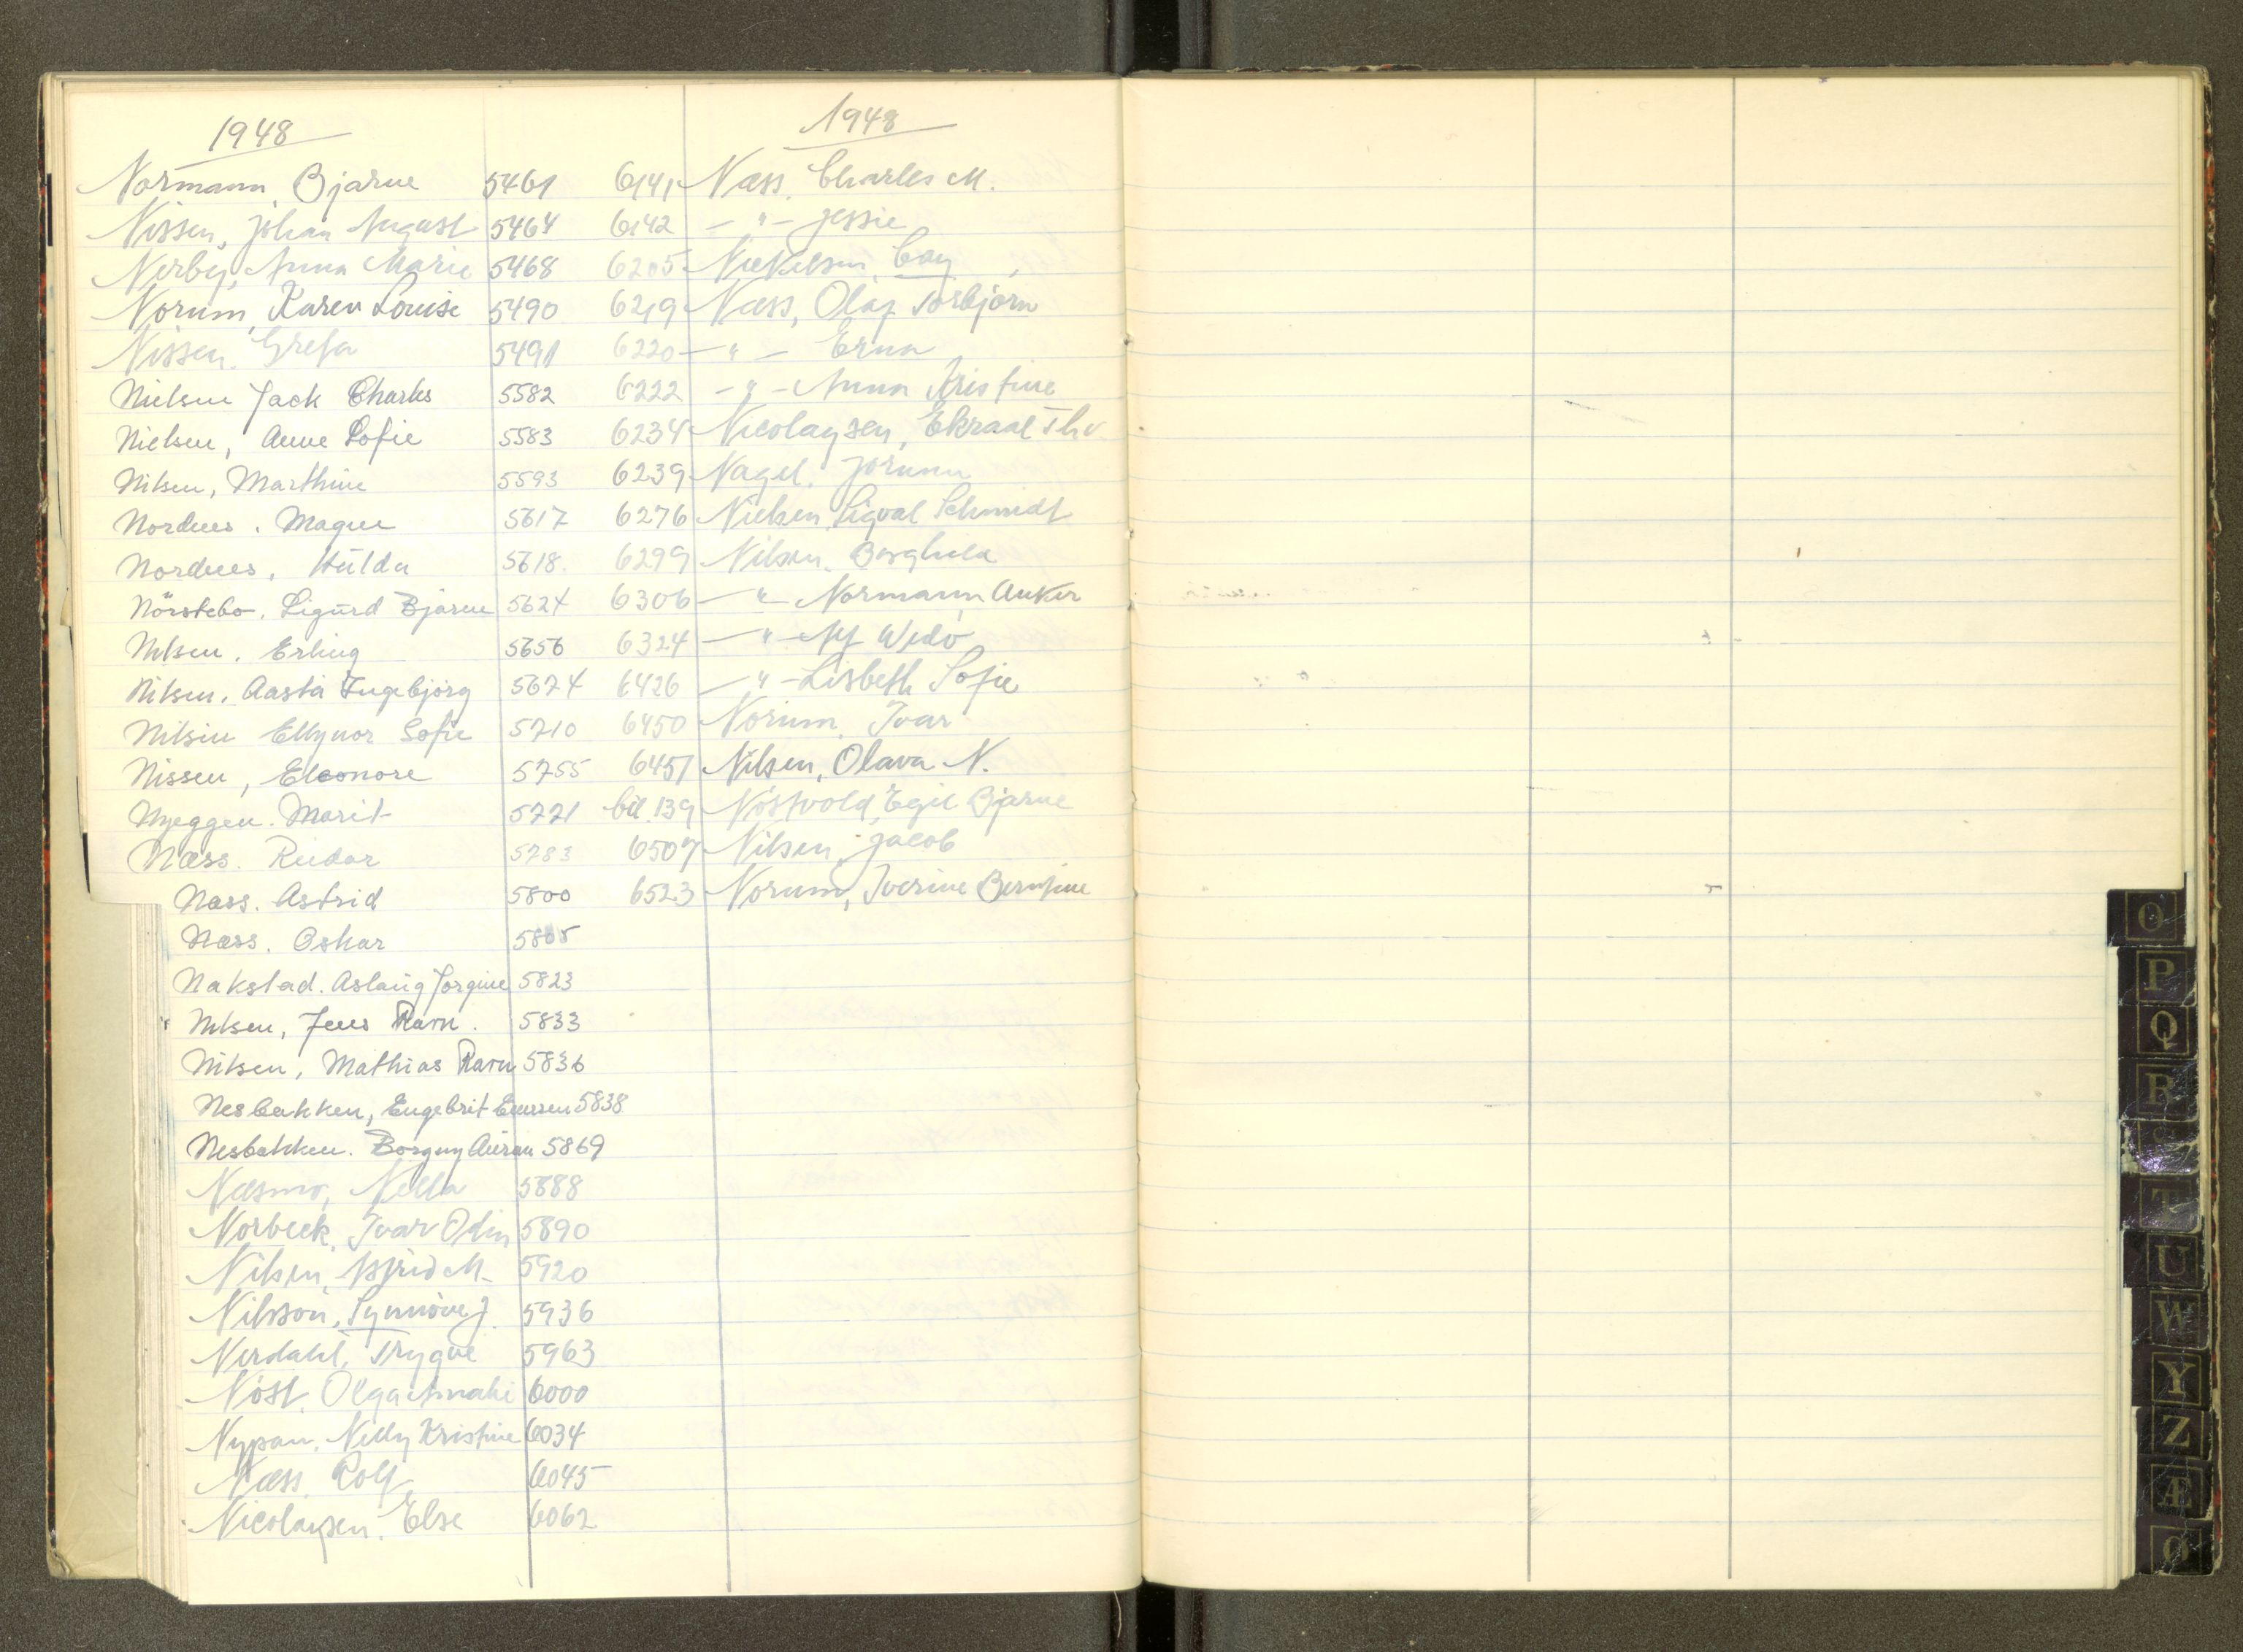 1948
Normann, Bjarne 5461
Nissen, Johan August 5464
Nerby, Anna Marie 5468
Norum, Karen Louise 5490
Nissen, Greta 5491
Nielsen Jack Charles 5582
Nielsen, Anne Sofie 5583
Nilsen, Marthine 5593
Nordnes. Magne 5617
Nordnes, Hulda 5618.
Nörstebo. Sigurd Bjarne 5624
Nilsen. Erling 5656
Nilsen. Aasta Ingebjörg 5674
Nilsen Ellynor Sofie 5710
Nissen, Eleonore 5755
Nyeggen. Marit 5771
Næss. Reidar 5783
Næss. Astrid 5800
Næss. Oskar 5805
Nakstad. Aslaug Jorgine 5823
Nilsen, Jens Ravn. 5833
Nilsen, Mathias Ravn 5836
Nesbakken, Engebrit 5838
Nesbakken. Borgny 5869
Næsmo, Nella 5888
Norbeck, Ivar Odin 5890
Nilsen, M. 5920
Nilsson, Synnöve J. 5936
Nerdahl, Trygve 5963
Nöst. Olga Amalie 6000
Nypan, Nelly Kristine 6034
Næss. Rolf 6045
Nicolaysen. Else 6062
1948
6141 Næss. Charles M.
6142 - " - Jessie
6205 Cay
6219 Næss, Olaf Torbjörn
6220 - " - Erna
6222 - " - Anna Kristine
6234 Nicolaysen, Ekraal Thv.
6239 Nagel. Jorunn
6276 Nielsen, Sigval Schmidt
6299 Nilsen. Borghild
6306 - " - Normann Anker
6324 - " - Alf Wedö
6426 - " - Lisbeth Sofie
6450 Norum. Ivar
6451 Nilsen, Olava N.
bil. 139 Nöstvold, Egil Bjarne
6507 Nilsen, Jacob
6523 Norum, Iverine Berntine
O
P
Q
R
S
T
U
W
Y
Z
Æ
Ø